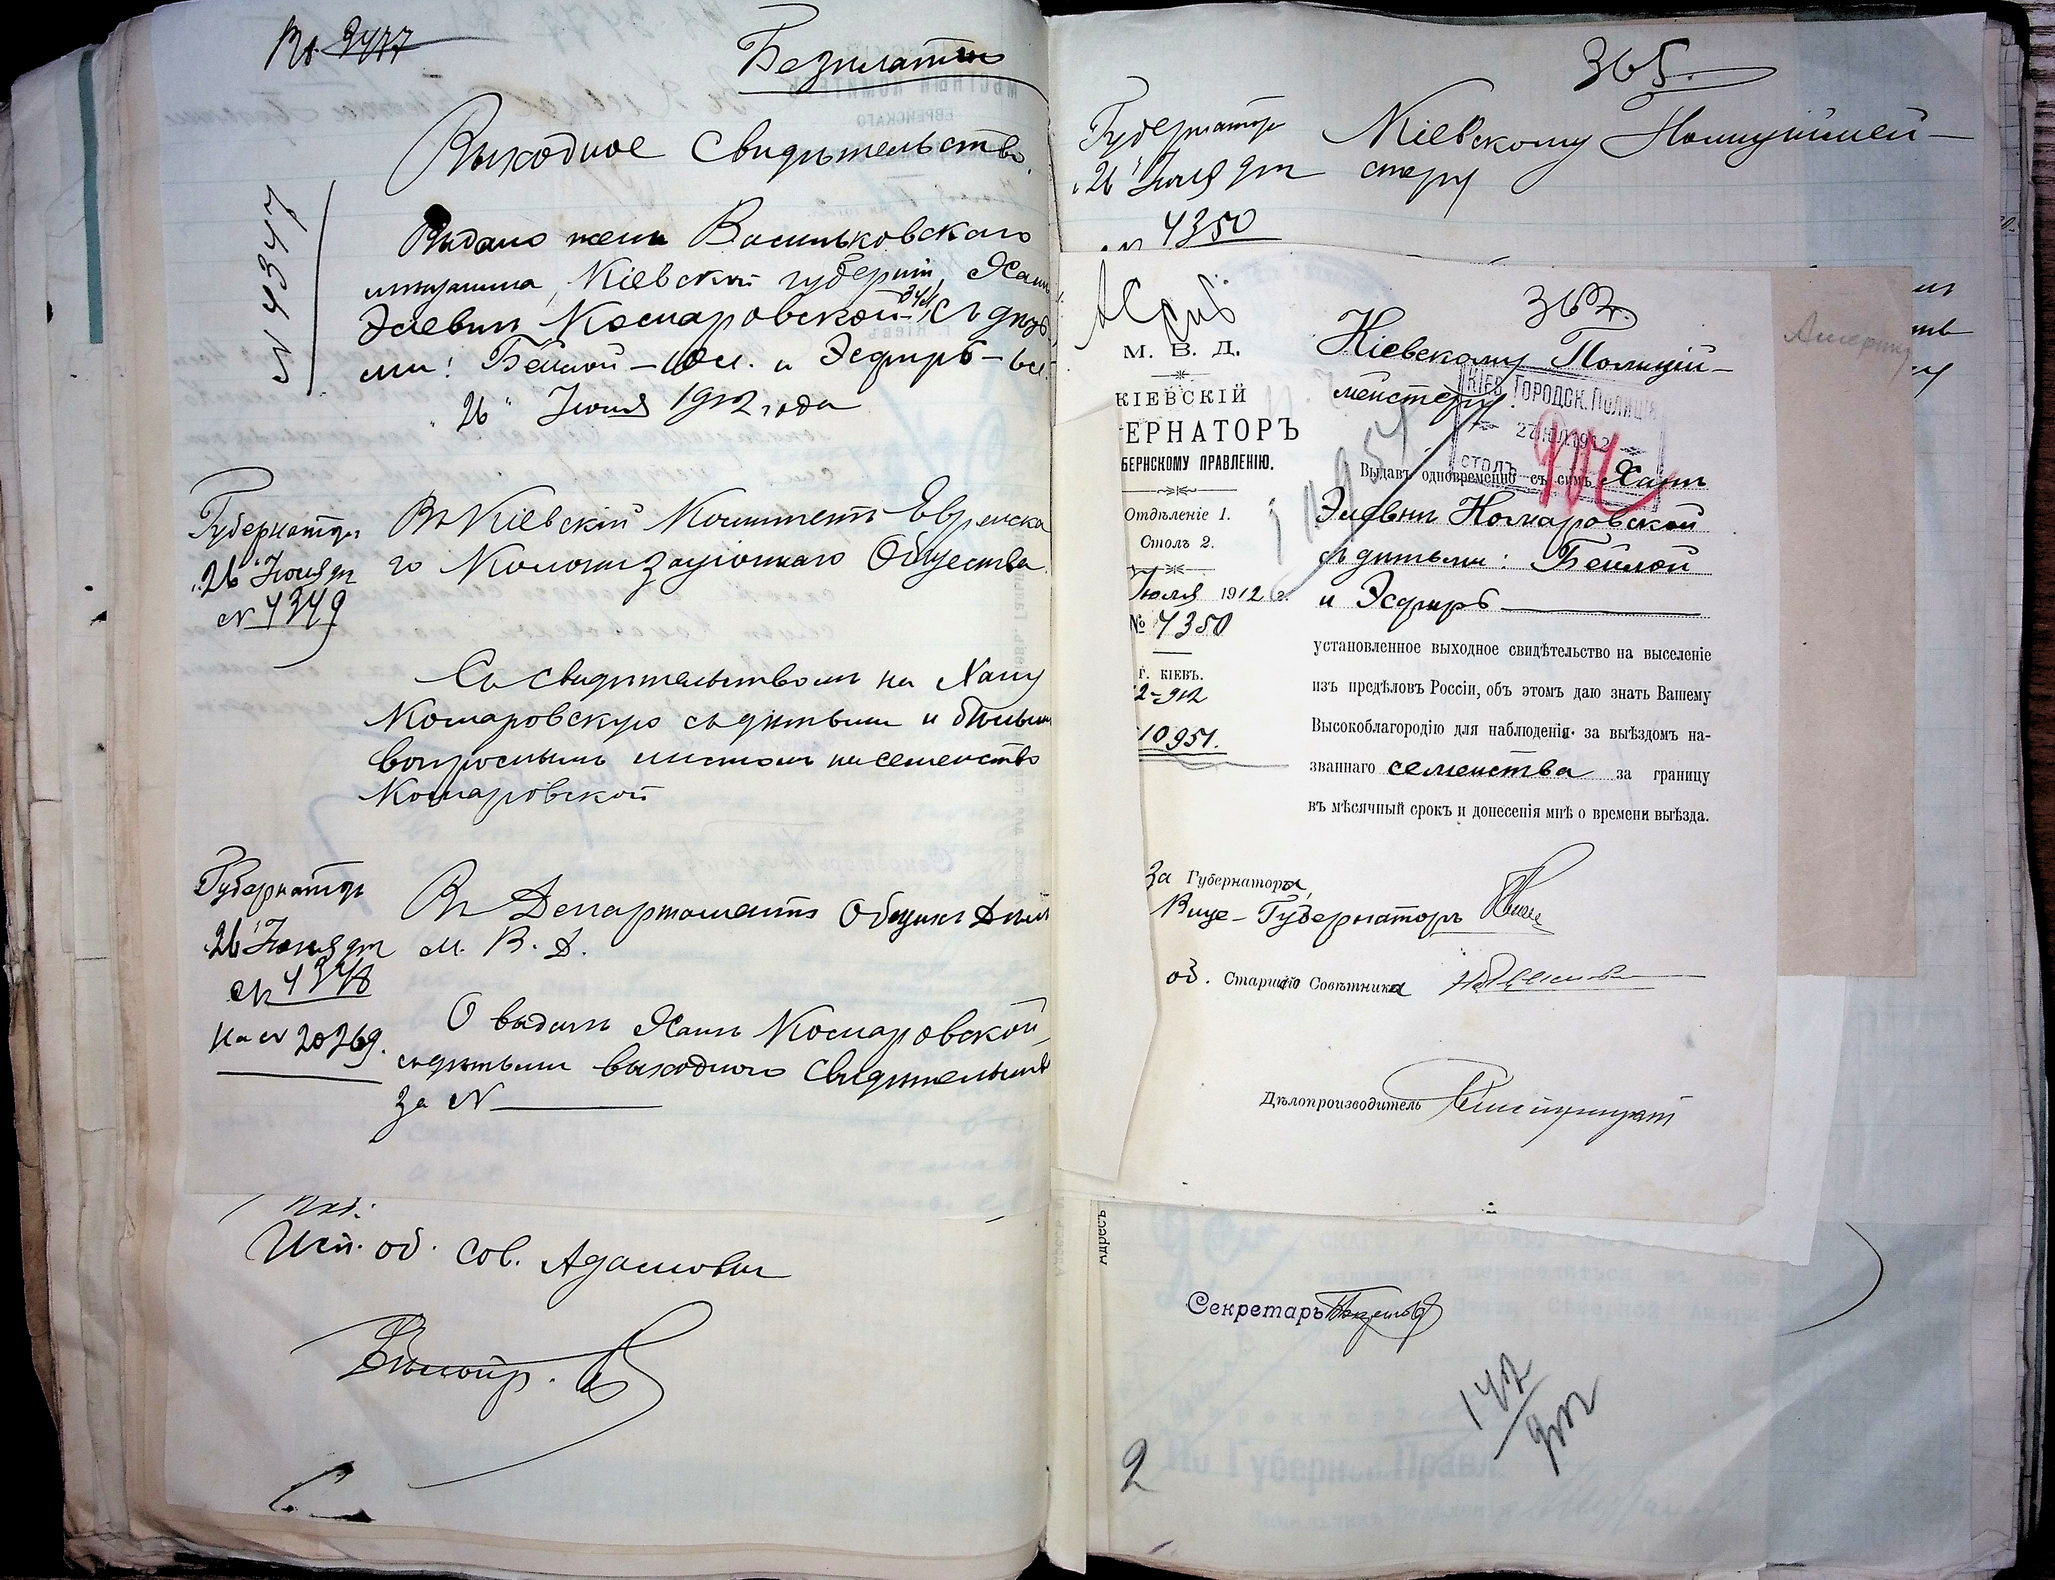 Вх. 3477
Безплатно
Выходное Свидѣтельство
№ 4347
Выдано женѣ Васильковскаго
мѣщанина, Кіевской губерніи, Ханѣ
Элевнѣ Комаровской 34 л., съ дѣть
ми: Бейлой – 10 л. и Эсфирь –
"26" Іюля 1912 года
Губернаторъ
"26" Іюля дня
№ 4349
Въ Кіевскій Комитетъ Еврейска
го Колонизаціоннаго Общества
Съ свидѣтельствомъ на Хану
Комаровскую съ дѣтьми и
вопроснымъ листомъ на семейство
Комаровской
Губернаторъ
"26" Іюля дня
№ 4348
На № 20269.
Въ Департаментъ Общихъ Дѣлъ
М. В. Д.
О выдачѣ Ханѣ Комаровской
съ дѣтьми выходного свидѣтельства
За №
Исп. об. Сов. Адамовичъ
365.
Губернаторъ
"26" Іюля дня
№ 4350
Кіевскому Полиціймей-
стеру
М. В. Д.
КІЕВСКІЙ
ЕРНАТОРЪ
БЕРНСКОМУ ПРАВЛЕНІЮ.
Отдѣленіе 1.
Столъ 2.
Іюля 1912 г.
№ 4350
Г. КІЕВЪ.
2-912
10951.
Кіевскому Полицій-
мейстеру.
КІЕВ. ГОРОДСК. ПОЛИЦІЯ
27 ІЮЛ 1912
СТОЛЪ
Выдавъ одновременно съ симъ Ханѣ
Элевнѣ Комаровской
съ дѣтьми: Бейлой
и Эсфирь
установленное выходное свидѣтельство на выселеніе
изъ предѣловъ Россіи, объ этомъ даю знать Вашему
Высокоблагородію для наблюденія за выѣздомъ на-
званнаго семейства за границу
въ мѣсячный срокъ и донесенія мнѣ о времени выѣзда.
За Губернатора,
Вице-Губернаторъ
об. Старшаго Совѣтника
Дѣлопроизводитель
Америку
Адресъ
Секретарь
142
912
2